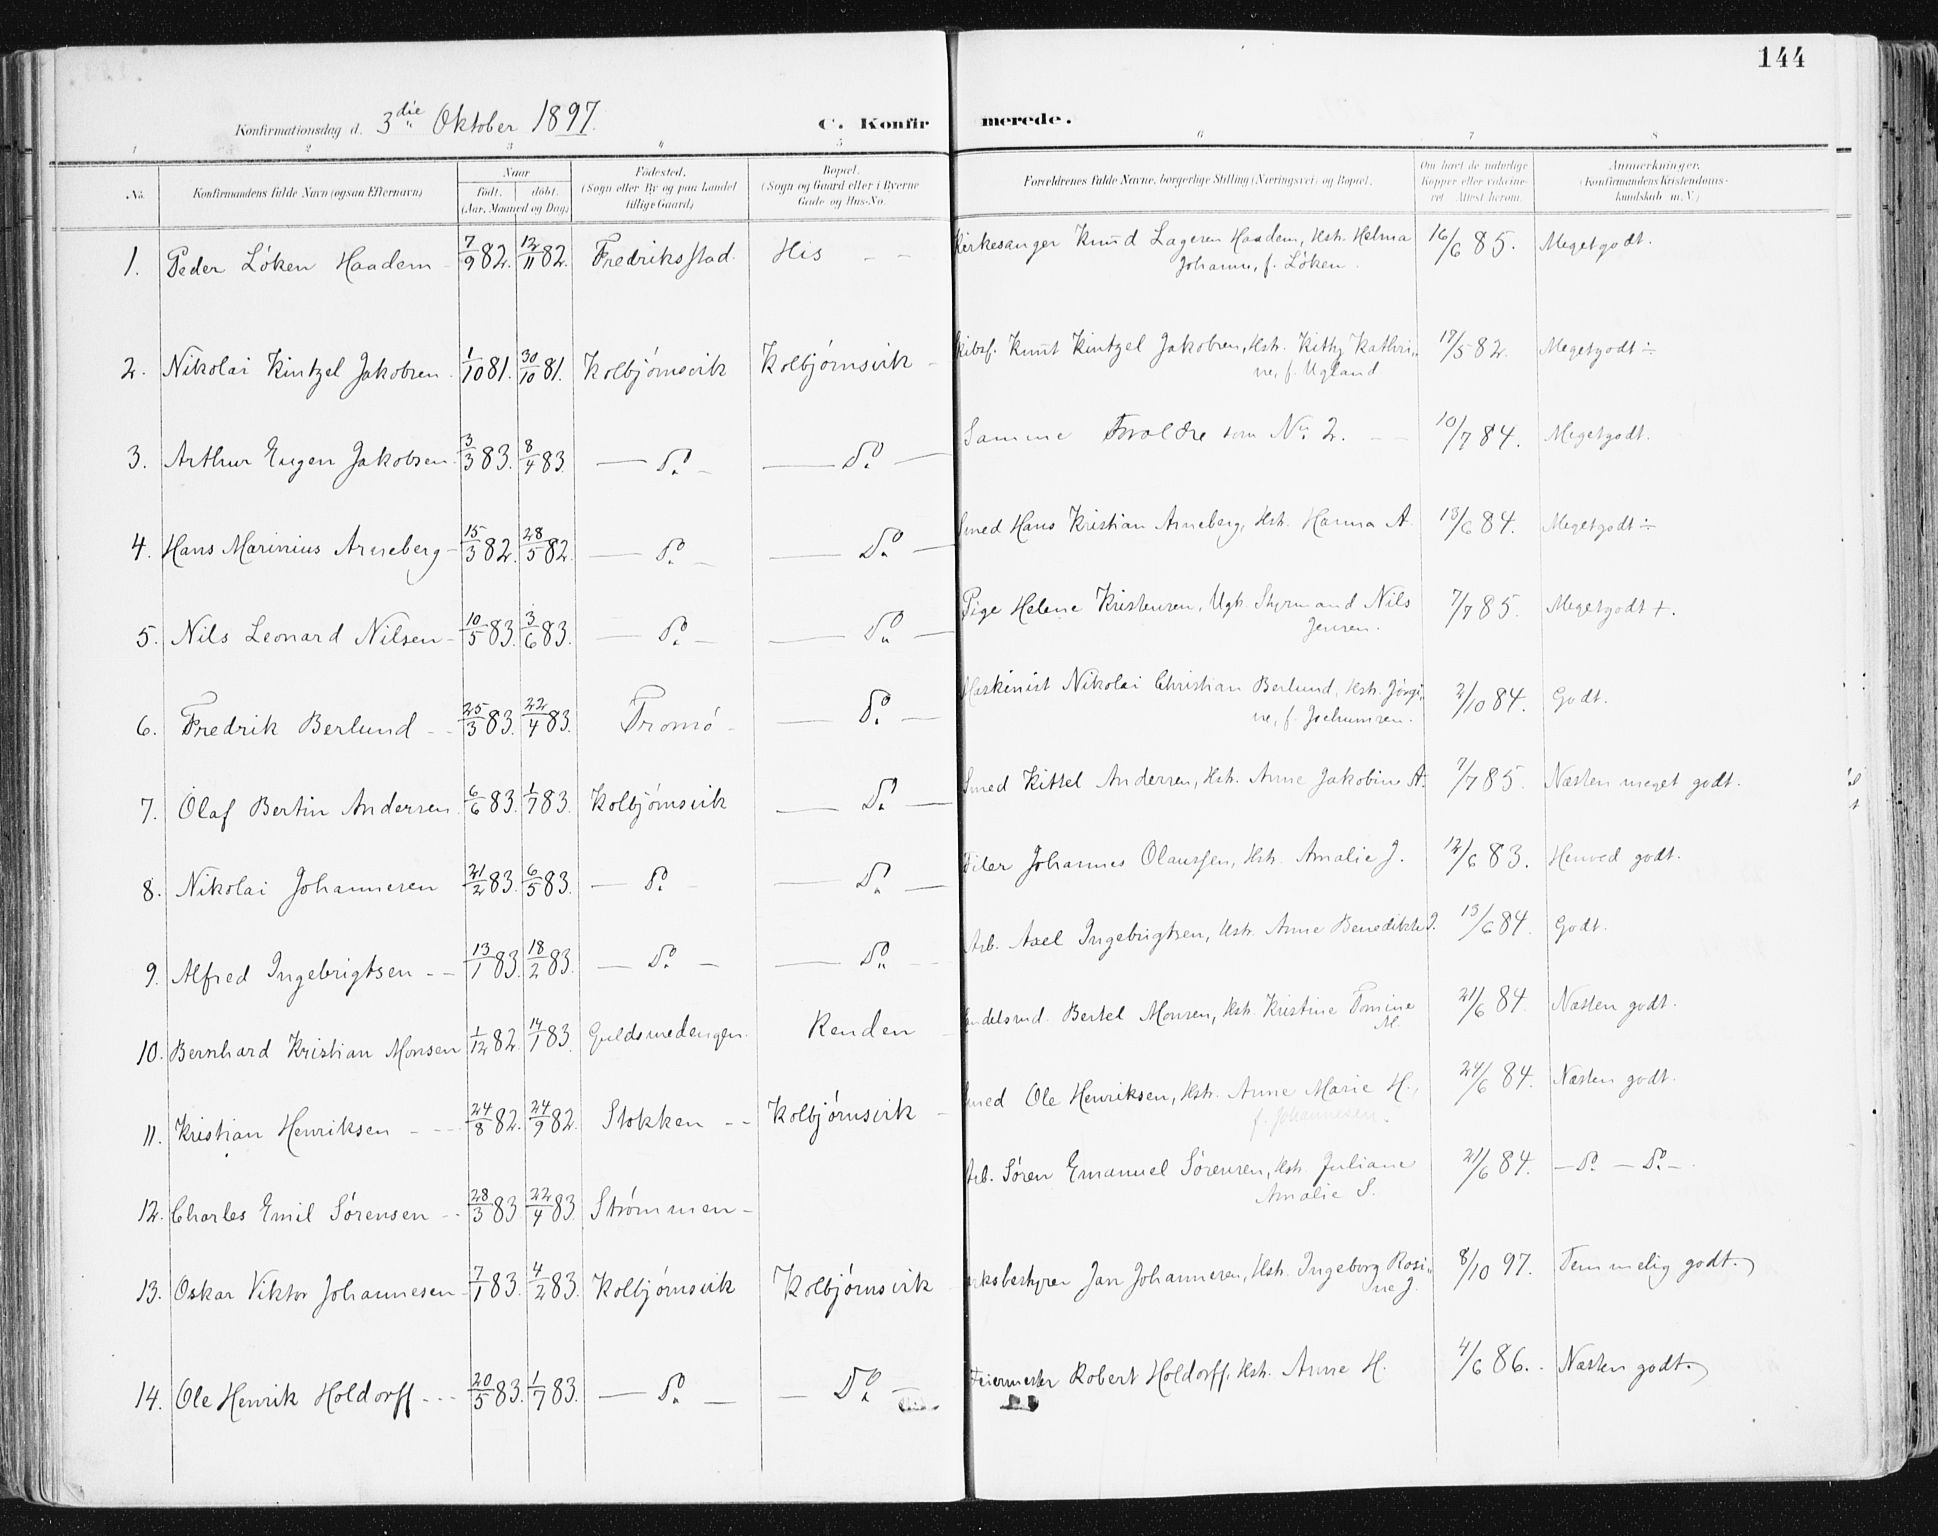 144
Konfirmationsdag d. 3die Oktober 1897.
C. Konfirmerede.
1 2 3 4 5 6 7 8
No. Konfirmandens fulde Navn (ogsaa Efternavn) Naar født. døbt. (Aar, Maaned og Dag) Fødested. (Sogn eller By og paa Landet tillige Gaard) Bopæl. (Sogn og Gaard eller i Byerne Gade og Hus-No. Forældrenes fulde Navne, borgerlige Stilling (Næringsvei) og Bopæl. Om havt de naturlige Kopper eller vakcineret. Attest herom. Anmærkninger. (Konfirmandens Kristendomskundskab m. V.)
1. Peder Løken Haadem - 7/9 82. 12/11 82. Fredriksstad. His - - Kirkesanger Knud Lageren Haadem, Hstr. Helma Johanne, f. Løken. 16/6 85. Megetgodt.
2. Nikolai Kintzel Jakobsen. 1/10 81. 30/10 81. Kolbjörnsvik Kolbjörnsvik - Skibsf. Knut Kintzel Jakobsen, Hstr. Kithy Kathrine, f. Ugland 17/5 82. Megetgodt ÷
3. Arthur Eugen Jakobsen. 3/3 83. 8/4 83. — Do. - — Do. — Samme Forældre som No. 2. - - 10/7 84. Megetgodt.
4. Hans Marinius Arneberg - 15/3 82. 28/5 82. — Do. - — Do. — Smed Hans Kristian Arneberg, Hstr. Hanna A. 13/6 84. Megetgodt ÷
5. Nils Leonard Nilsen - 10/5 83. 3/6 83. — Do. - — Do. — Pige Helene Kristensen, Ugk. Styrmand Nils Jensen. 7/7 85. Megetgodt +.
6. Fredrik Berlund - - 25/3 83. 22/4 83. Tromö - — Do. — Maskinist Nikolai Christian Berlund, Hstr. Jörgine, f. Jochumsen. 2/10 84. Godt.
7. Olaf Bertin Andersen. 6/6 83. 1/7 83. Kolbjörnsvik — Do. — Smed Kittel Andersen, Hstr. Anne Jakobine A. 7/7 85. Næsten meget godt.
8. Nikolai Johannesen 21/2 83. 6/5 83. — Do. - — Do. — Filer Johannes Olaussen, Hstr. Amalie J. 12/6 83. Henved godt.
9. Alfred Ingebrigtsen - - 13/1 83. 18/2 83. — Do. — — Do. - - Arb. Axel Ingebrigtsen, Hstr. Anne Benedikte I. 13/6 84. Godt.
10. Bernhard Kristian Monsen 1/12 82. 14/1 83. Guldsmedengen. Renden - Bertel Monsen, Hstr. Kristine Tomine M. 21/6 84. Næsten godt.
11. Kristian Henriksen - - - 24/8 82. 24/9 82. Stokken - - Kolbjörnsvik - Smed Ole Henriksen, Hstr. Anne Marie H., f. Johannesen. 24/6 84. Næsten godt.
12. Charles Emil Sörensen - - 28/3 83. 22/4 83. Strömmen - Arb. Sören Emanuel Sörensen, Hstr. Juliane Amalie S. 21/6 84. — Do. — Do. -.
13. Oskar Viktor Johannesen - 7/1 83. 4/2 83. Kolbjörnsvik Kolbjörnsvik Jan Johannesen, Hstr. Ingeborg Rosine J. 8/10 97. Temmelig godt.
14. Ole Henrik Holdorff - - - 20/5 83. 1/7 83. — Do. — — Do. — Feiermester Robert Holdorff, Hstr. Anne H. 4/6 86. Næsten godt.